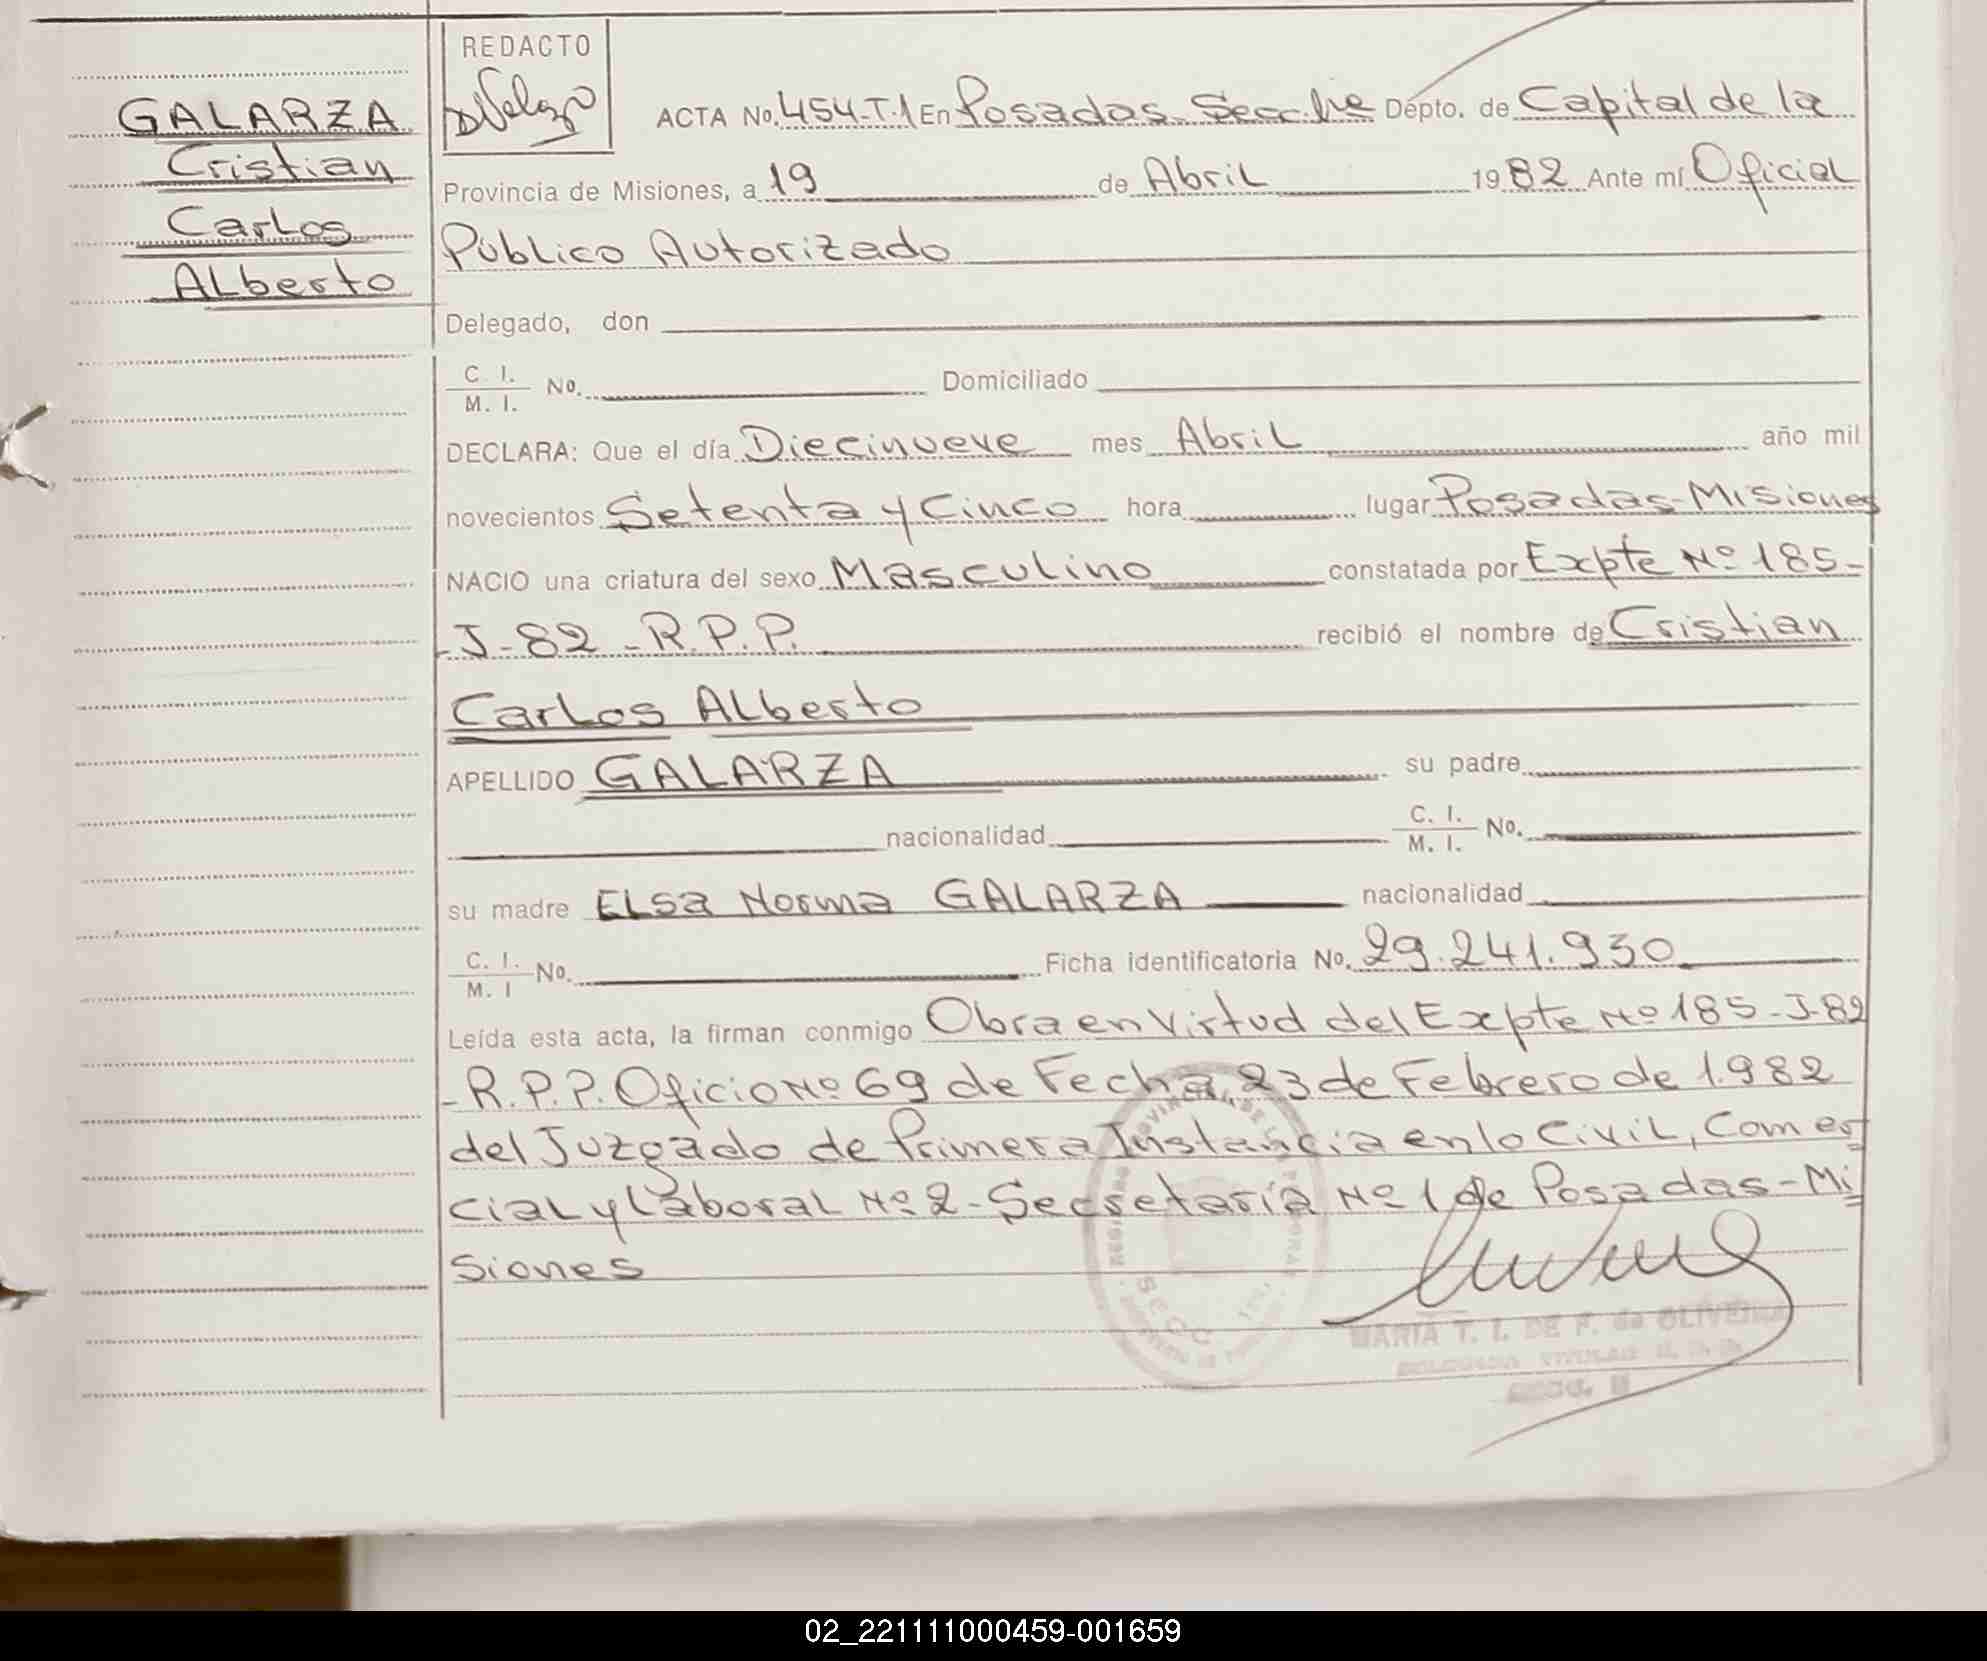 REDACTO
GALARZA
Cristian
Carlos
Alberto
ACTA No. 454-T.1 En Posadas Secc. Depto. de Capital de la
Provincia de Misiones, a 19 de Abril 1982 Ante mí Oficial
Público Autorizado
Delegado, don
C. I. M. I. No. Domiciliado
DECLARA: Que el día Diecinueve mes Abril año mil
novecientos Setenta y Cinco hora lugar Posadas-Misiones
NACIO una criatura del sexo Masculino constatada por Expte Nº 185-
-J-82-R.P.P. recibió el nombre de Cristian
Carlos Alberto
APELLIDO GALARZA su padre
nacionalidad C. I. M. I. No.
su madre Elsa Norma GALARZA nacionalidad
C. I. M. I No. Ficha identificatoria No. 29.241.930
Leída esta acta, la firman conmigo Obra en Virtud del Expte Nº 185-J-82
-R.P.P. Oficio Nº 69 de Fecha, 23 de Febrero de 1.982
del Juzgado de Primera Instancia en lo Civil, Comer
cial y Laboral Nº 2-Secretaría Nº 1 de Posadas-Mi
siones
MARIA T. I. DE F. de OLIVEIRA
02_221111000459-001659